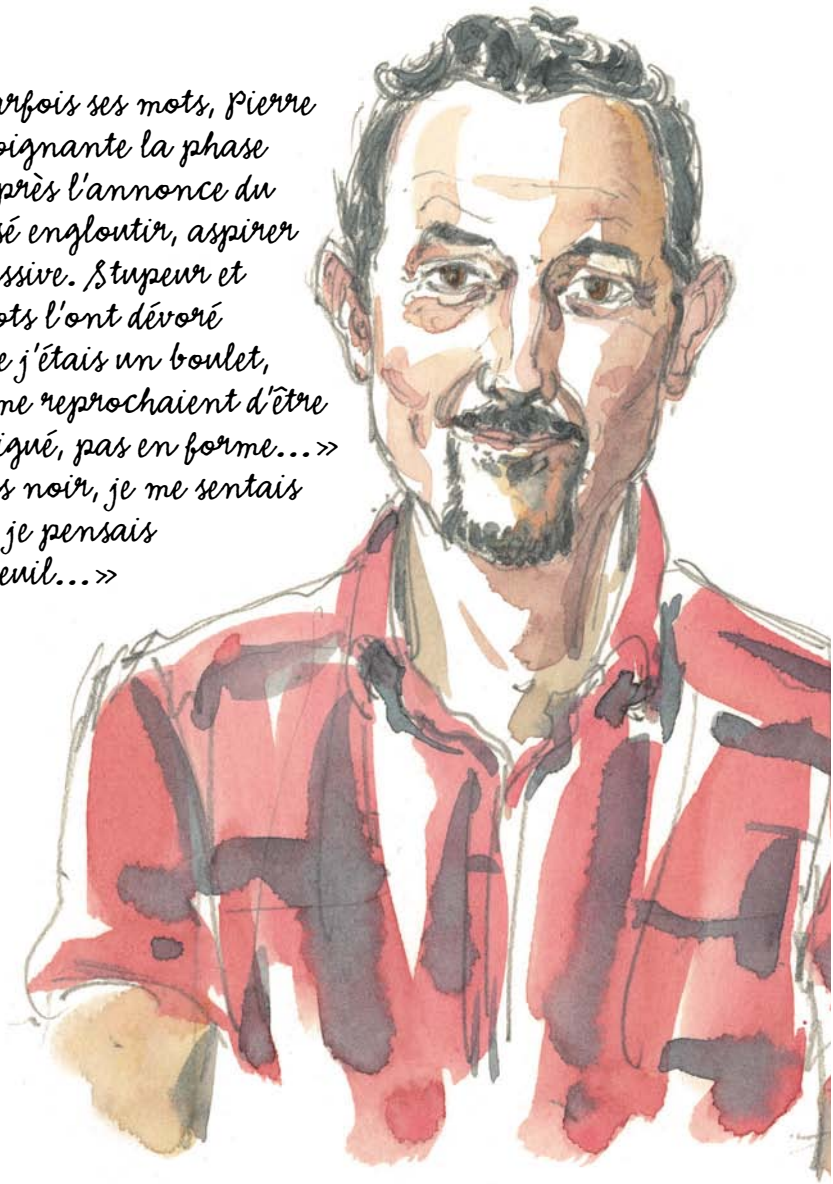 arfois ses mots, Pierre
oignante la phase
près l'annonce du
sé engloutir, aspirer
ssive. Stupeur et
ots l'ont dévoré
e j'étais un boulet,
me reprochaient d'être
igué, pas en forme...»
s noir, je me sentais
je pensais
euil...»